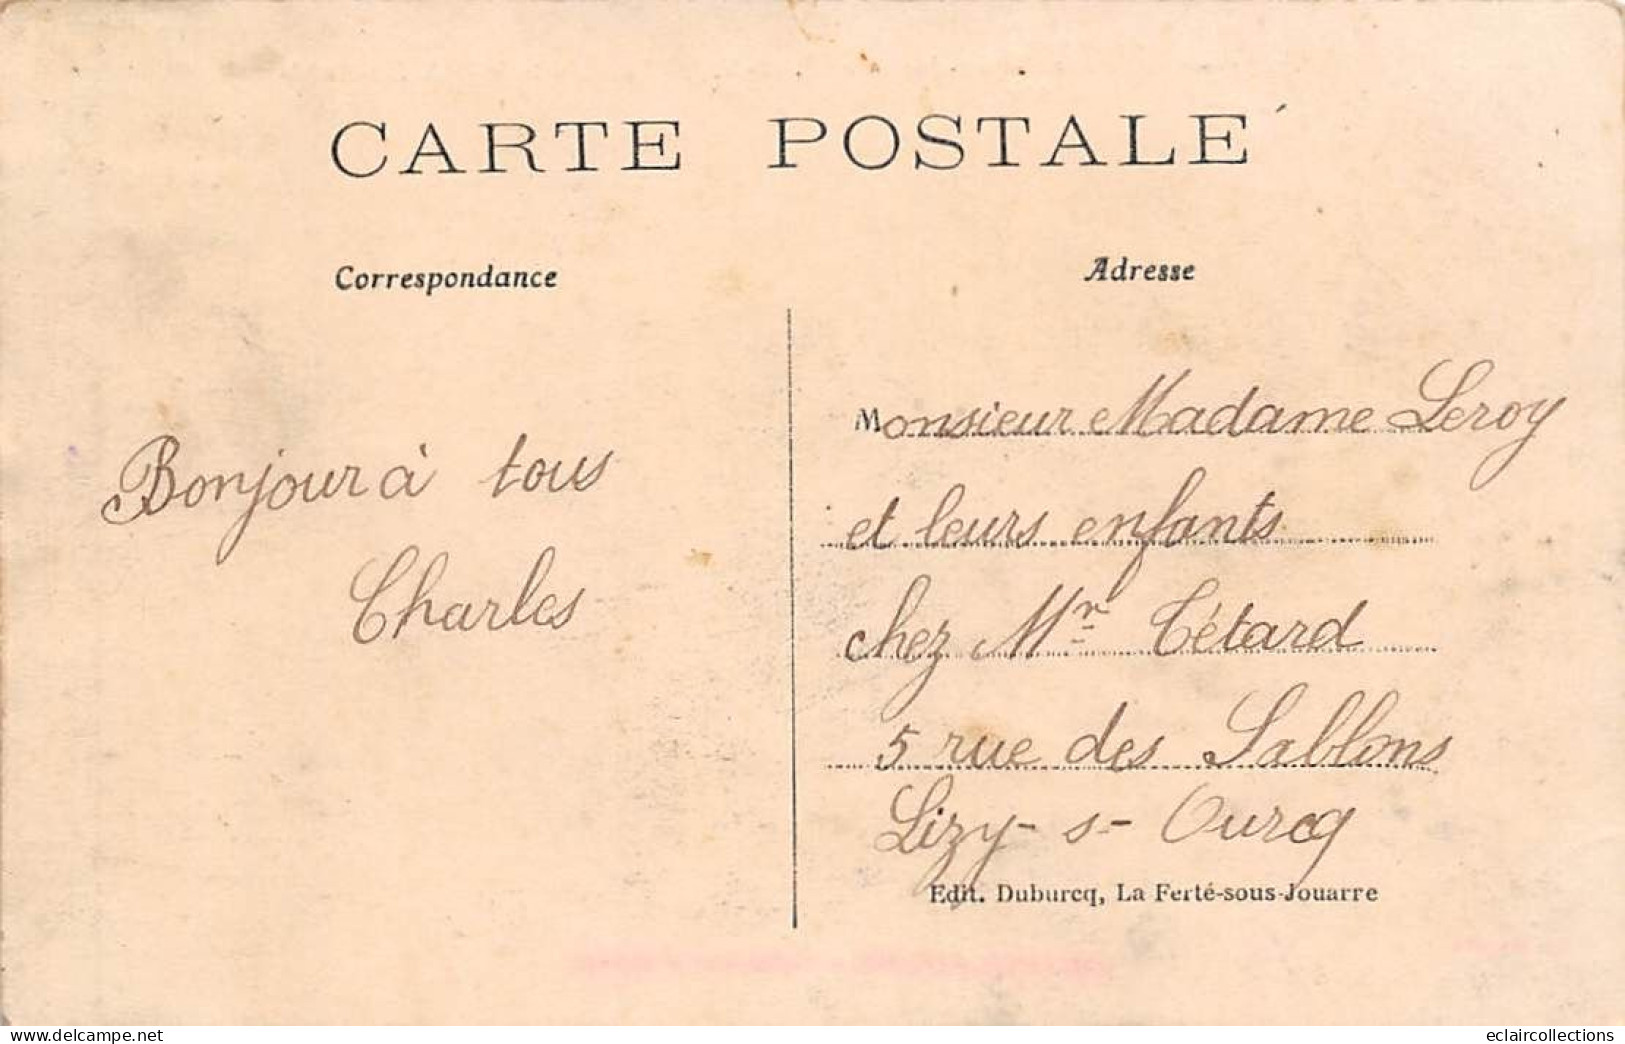 CARTE POSTALE
Correspondance
Adresse
Bonjour à tous
Charles
Monsieur Madame Leroy
et leurs enfants
chez Mr Tétard
5 rue des Sablons
Lizy-s-Ourcq
Edit. Duburcq, La Ferté-sous-Jouarre
www.delcampe.net
eclaircollections